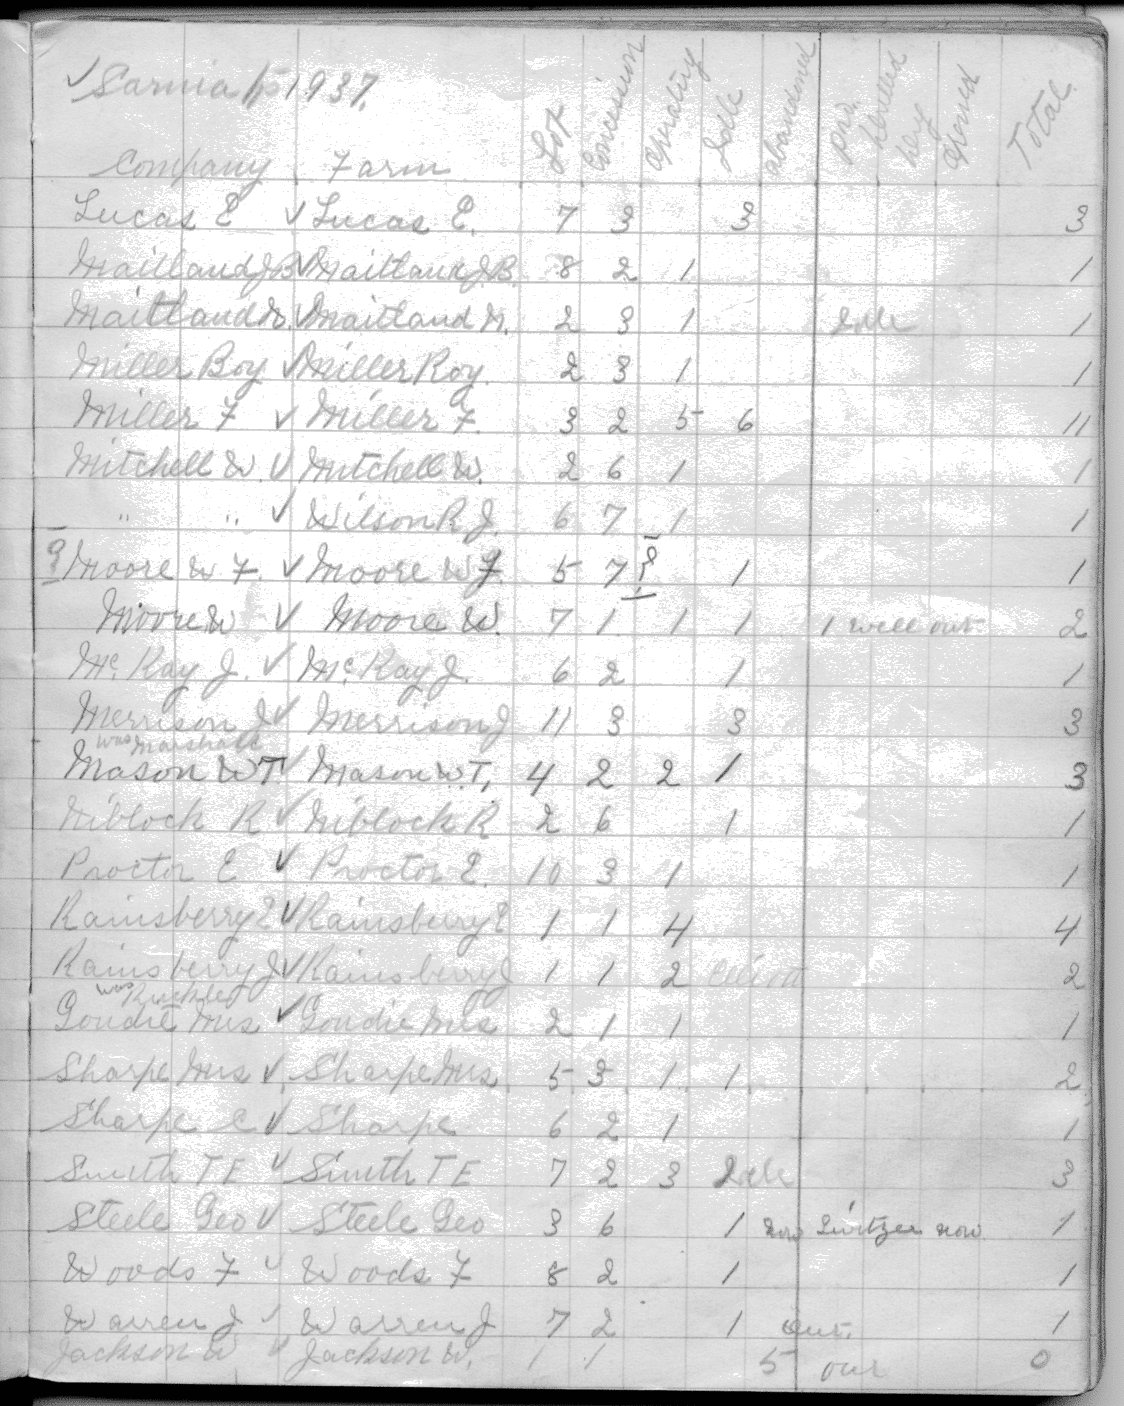 ✓ Sarnia 15 1937.
Company Farm Lot Concession Operating Idle abandoned Total
Lucas E ✓ Lucas E. 7 3 3 3
Maitland J B ✓ Maitland J.B. 8 2 1 1
Maitland ✓ Maitland 2 3 1 Idle 1
Miller Roy ✓ Miller Roy. 2 3 1 1
Miller F ✓ Miller F. 3 2 5 6 11
Mitchell W. ✓ Mitchell W. 2 6 1 1
" " ✓ Wilson R. J. 6 7 1 1
9 Moore W F. ✓ Moore W F. 5 7 1 1
Moore W ✓ Moore W. 7 1 1 1 1 well out 2
Mc Kay J. ✓ Mc Kay J. 6 2 1 1
Merrison J ✓ Merrison J 11 3 3 3
was Marshall
Mason W T ✓ Mason W.T. 4 2 2 1 3
Niblock R ✓ Niblock R 2 6 1 1
Proctor E ✓ Proctor E. 10 3 1 1
Rainsberry E ✓ Rainsberry E 1 1 4 4
Rainsberry J ✓ Rainsberry J 1 1 2 2
was
Goudie Mrs ✓ Goudie Mrs 2 1 1 1
Sharpe Mrs ✓ Sharpe Mrs 5 3 1 1 2
Sharpe C ✓ Sharpe 6 2 1 1
Smith T E ✓ Smith T E 7 2 3 Idle 3
Steele Geo ✓ Steele Geo 3 6 1 now Switzer now 1
Woods F ✓ Woods F 8 2 1 1
Warren J ✓ Warren J 7 2 1 out. 1
Jackson W ✓ Jackson W. 1 1 5 out 0